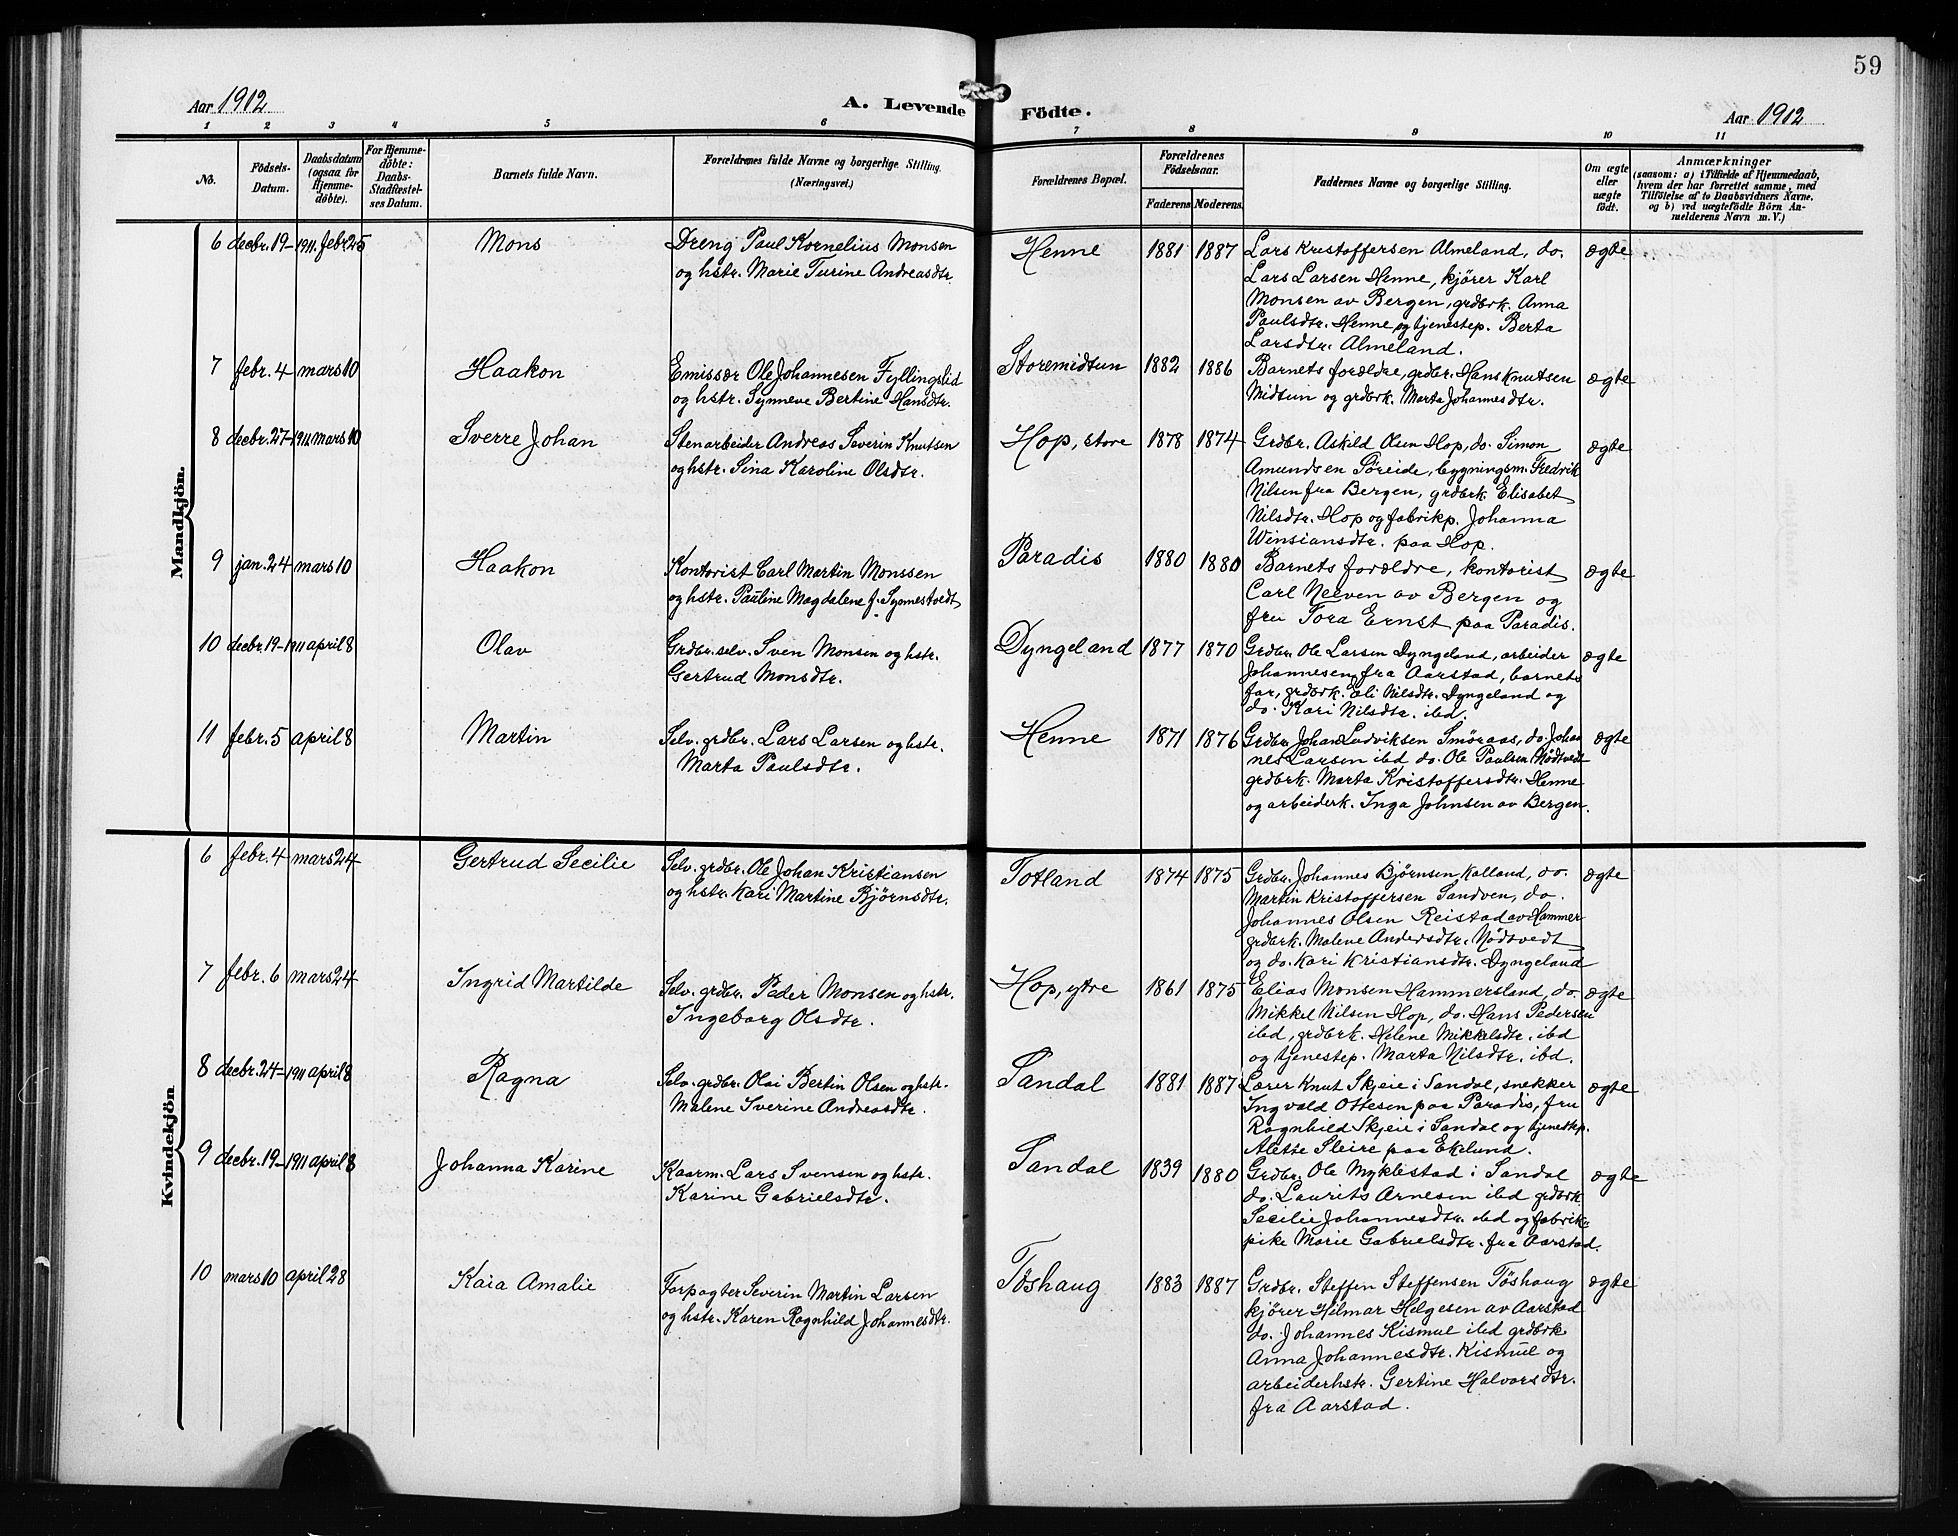 59
Aar 1912
A. Levende
Födte.
Aar 1912
1 2 3 4 5 6 7 8 9 10 11
No.
Födsels-
Datum.
Daabsdatum
(ogsaa for
Hjemme-
döbte).
For Hjemme-
döbte:
Daabs-
Stadfæstel-
ses Datum.
Barnets fulde Navn.
Forældrenes fulde Navne og borgerlige Stilling.
(Næringsvei.)
Forældrenes Bopæl.
Forældrenes
Födselsaar.
Faderens
Moderens.
Faddernes Navne og borgerlige Stilling.
Om ægte
eller
uægte
födt.
Anmærkninger
(saasom: a) i Tilfælde af Hjemmedaab,
hvem der har forrettet samme, med
Tilföielse af to Daabsvidners Navne,
og b) ved uægtefödte Börn An-
melderens Navn m.V.)
Mandkjön.
6 decbr. 19-1911 febr 25 Mons
Dreng Paul Kornelius Monsen
og hstr. Marie Turine Andreasdtr.
Henne 1881 1887
Lars Kristoffersen Almeland, do.
Lars Larsen Henne, kjører Karl
Monsen av Bergen, grdbrk. Anna
Paulsdtr. Henne og tjenestep. Berta
Larsdtr. Almeland.
ægte
7 febr. 4 mars 10 Haakon
Emissær Ole Johannesen Fyllingslid
og hstr. Synneve Bertine Hansdtr.
Storemidtun 1882 1886
Barnets forældre, grdbr. Hans Knutsen
Midtun og grdbrk. Marta Johannesdtr.
ægte
8 decbr. 27-1911 mars 10 Sverre Johan
Stenarbeider Andreas Severin Knutsen
og hstr. Sina Karoline Olsdtr.
Hop, store 1878 1874
Grdbr. Askild Olsen Hop, do. Simon
Amundsen Søreide, bygningsm. Fredrik
Nilsen fra Bergen, grdbrk Elisabet
Nilsdtr. Hop og fabrikp. Johanna
Winsiansdtr. paa Hop.
ægte
9 jan. 24 mars 10 Haakon
Kontorist Carl Martin Monssen
og hstr. Pauline Magdalene f. Synnestvedt
Paradis 1880 1880
Barnets forældre, kontorist
Carl Neeven av Bergen og
fru Tora Ernst paa Paradis.
ægte
10 decbr. 19-1911 april 8 Olav
Grdbr. selv. Sven Monsen og hstr.
Gertrud Monsdtr.
Dyngeland 1877 1870
Grdbr. Ole Larsen Dyngeland, arbeider
Johannesen fra Aarstad, barnets
far, grdbrk. Eli Nilsdtr. Dyngeland og
do. Kari Nilsdtr. ibd.
ægte
11 febr. 5 april 8 Martin
Selv. grdbr. Lars Larsen og hstr.
Marta Paulsdtr.
Henne 1871 1876
Grdbr. Johan Ludviksen Smøraas, do. Johan
nes Larsen ibd do. Ole Paulsen Nødtvedt
grdbrk. Marta Kristoffersdtr. Henne
og arbeiderk. Inga Johnsen av Bergen.
ægte
Kvindekjön
6 febr. 4 mars 24 Gertrud Secilie
Selv. grdbr. Ole Johan Kristiansen
og hstr. Kari Martine Bjørnsdtr.
Totland 1874 1875
Grdbr. Johannes Bjørnsen Kalland, do.
Martin Kristoffersen Sandven, do.
Johannes Olsen Reistad av Hammer
grdbrk. Malene Andersdtr. Nødtvedt
og do. Kari Kristiansdtr. Dyngeland
ægte
7 febr. 6 mars 24 Ingrid Martilde
Selv. grdbr. Peder Monsen og hstr.
Ingeborg Olsdtr.
Hop, ytre 1861 1875
Elias Monsen Hammersland, do.
Mikkel Nilsen Hop, do. Hans Pedersen
ibd, grdbrk. Helene Mikkelsdtr. ibd
og tjenestep. Marta Nilsdtr. ibd.
ægte
8 decbr. 24-1911 april 8 Ragna
Selv. grdbr. Olai Bertin Olsen og hstr.
Malene Sverine Andreasdtr.
Sandal 1881 1887
Lærer Knut Skjeie i Sandal, snekker
Ingvald Ottesen paa Paradis, fru
Ragnhild Skjeie i Sandal og tjenestep.
Alette Sleire paa Ekelund.
ægte
9 decbr. 19-1911 april 8 Johanna Karine
Kaarm. Lars Svensen og hstr.
Karine Gabrielsdtr.
Sandal 1839 1880
Grdbr. Ole Myklestad i Sandal
do. Laurits Arnesen ibd grdbrk
Secilie Johannesdtr. ibd og fabrik-
pike Marie Gabrielsdtr. fra Aarstad.
ægte
10 mars 10 april 28 Kaia Amalie
Forpagter Severin Martin Larsen
og hstr. Karen Ragnhild Johannesdtr.
Tøshaug 1883 1887
Grdbr. Steffen Steffensen Tøshaug
kjører Hilmar Helgesen av Aarstad
do. Johannes Kismul ibd grdbrk
Anna Johannesdtr. Kismul og
arbeiderhstr. Gertine Halvorsdtr.
fra Aarstad.
ægte